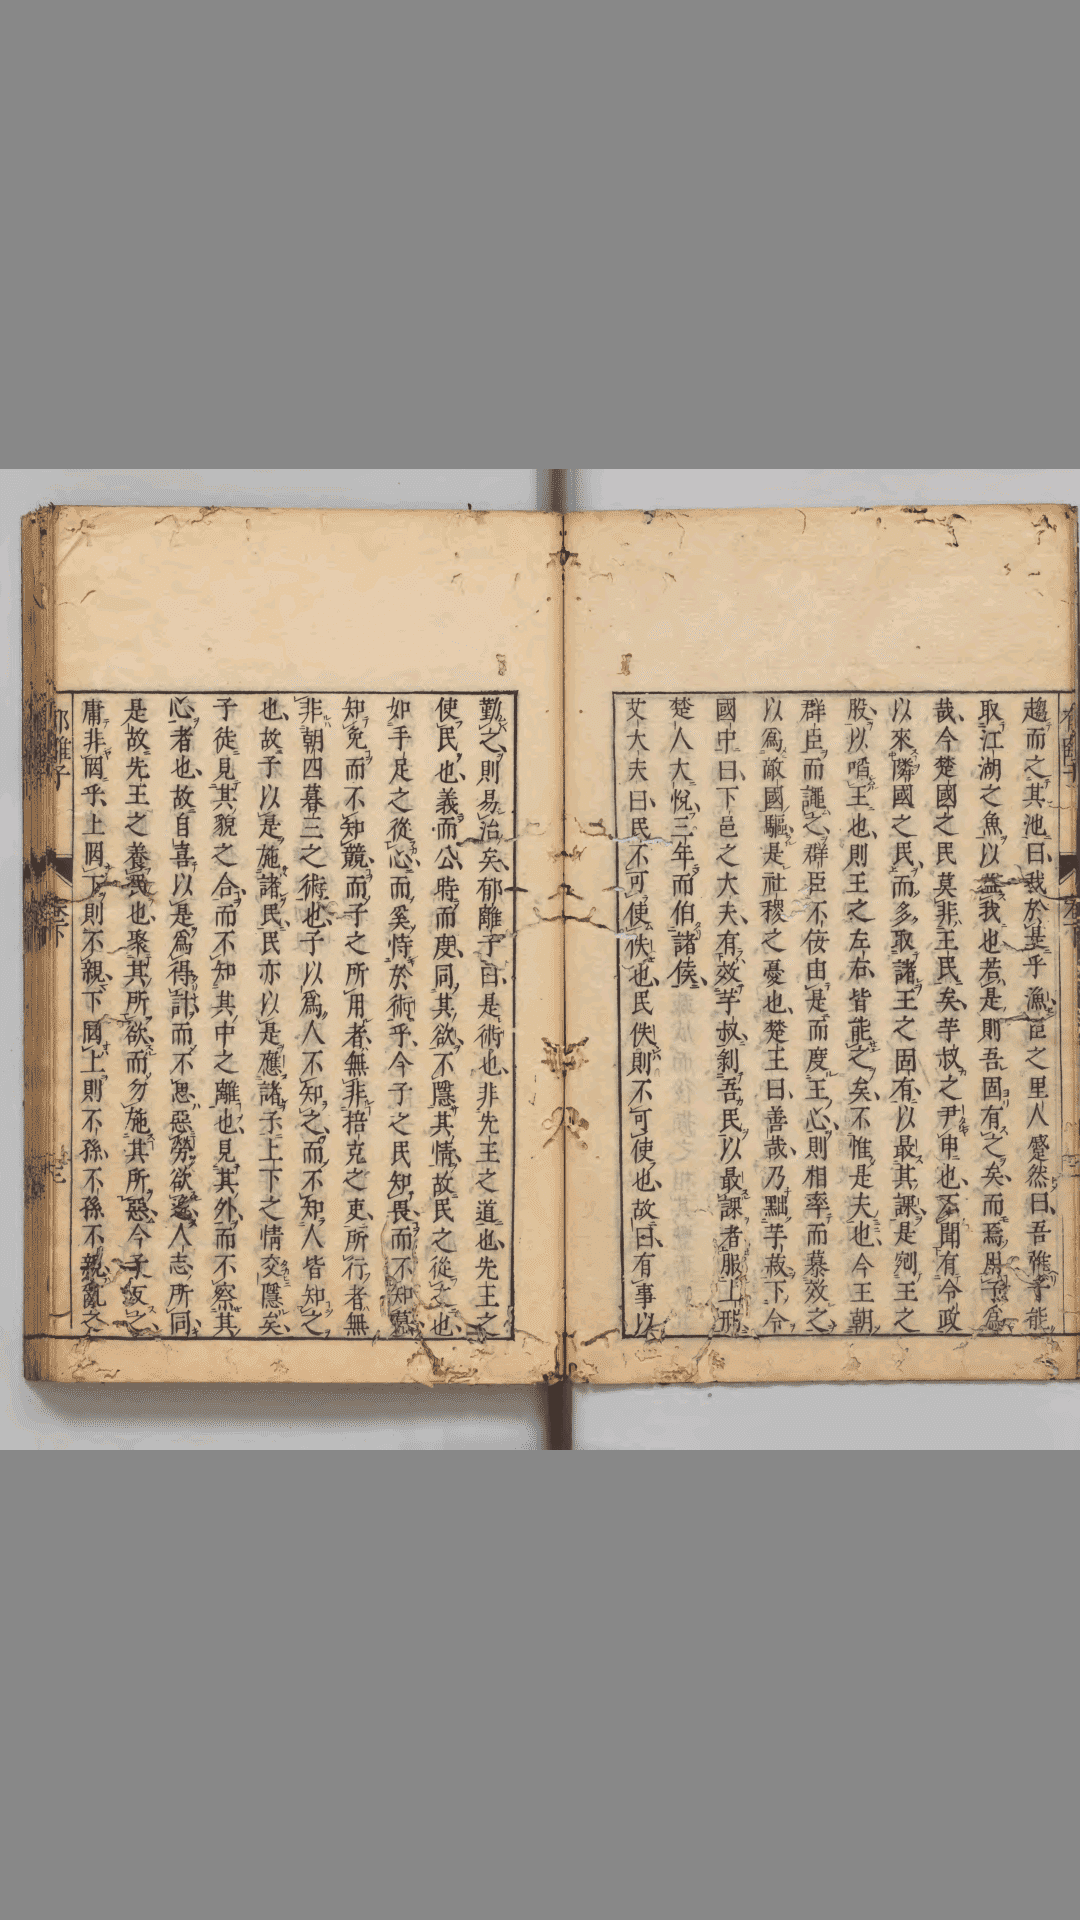 趨而之其池曰我於是乎漁臣之里人蹙然曰吾惟子能
取江湖之魚以益我也若是則吾固有之矣而焉用子爲
哉今楚國之民莫非王民矣芋叔之尹申也不聞有令政
以來隣國之民而多取諸王之固有以最其課是剜王之
股以啗王也則王之左右皆能之矣不惟是夫也今王朝
群臣而謳之群臣不佞由是而度王心則相率而慕效之
以爲敵國驅是社稷之憂也楚王曰善哉乃黜芋叔下令
國中曰下邑之大夫有效芋叔剝吾民以最課者服上刑
楚人大悅三年而伯諸侯
艾大夫曰民不可使佚也民佚則不可使也故曰有事以
勤之則易治矣郁離子曰是術也非先王之道也先王之
使民也義而公時而度同其欲不隱其情故民之從之也
如手足之從心而奚恃於術乎今子之民知畏而不知慕
知免而不知競而子之所用者無非掊克之吏所行者無
非朝四暮三之術也子以爲人不知之而不知人皆知之
也故子以是施諸民民亦以是應諸子上下之情交隱矣
子徒見其貌之合而不知其中之離也見其外而不察其
心者也故自喜以是爲得計而不思惡勞欲逸人志所同
是故先王之養民也聚其所欲而勿施其所惡今子反之
庸非罔乎上罔下則不親下罔上則不孫不孫不親亂之
郁離子